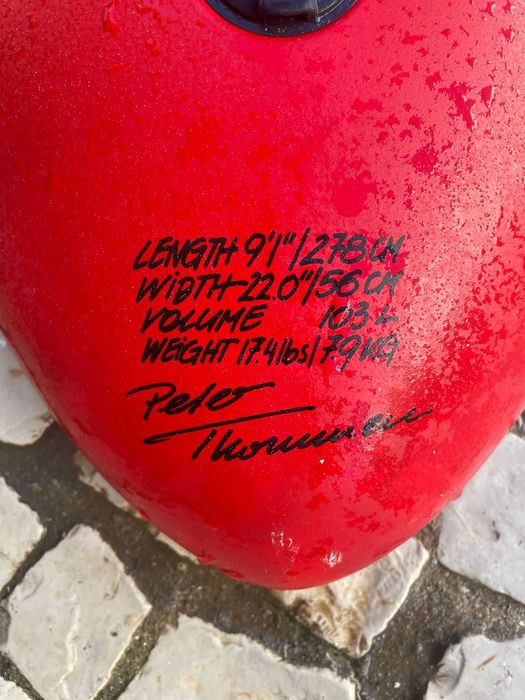 LENGTH 9'1"/278 CM
WIDTH-22.0"/56 CM
VOLUME 103 L
WEIGHT 17.4lbs/7.9 KG
Peter
Thommen